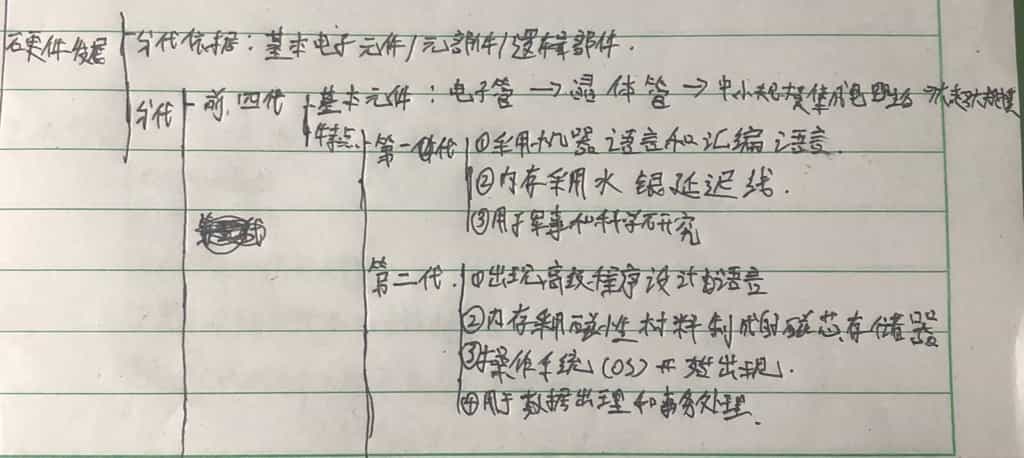 硬件发展
分代依据：基本电子元件/元部件/逻辑部件.
分代 前四代 基本元件：电子管→晶体管→中小规模集成电路→大规模
特点. 第一代 ①采用机器语言和汇编语言.
②内存采用水银延迟线.
③用于军事和科学研究
第二代. ①出现高级程序设计语言
②内存采用磁性材料制成的磁芯存储器
③操作系统(OS)开始出现.
④用于数据处理和事务处理.